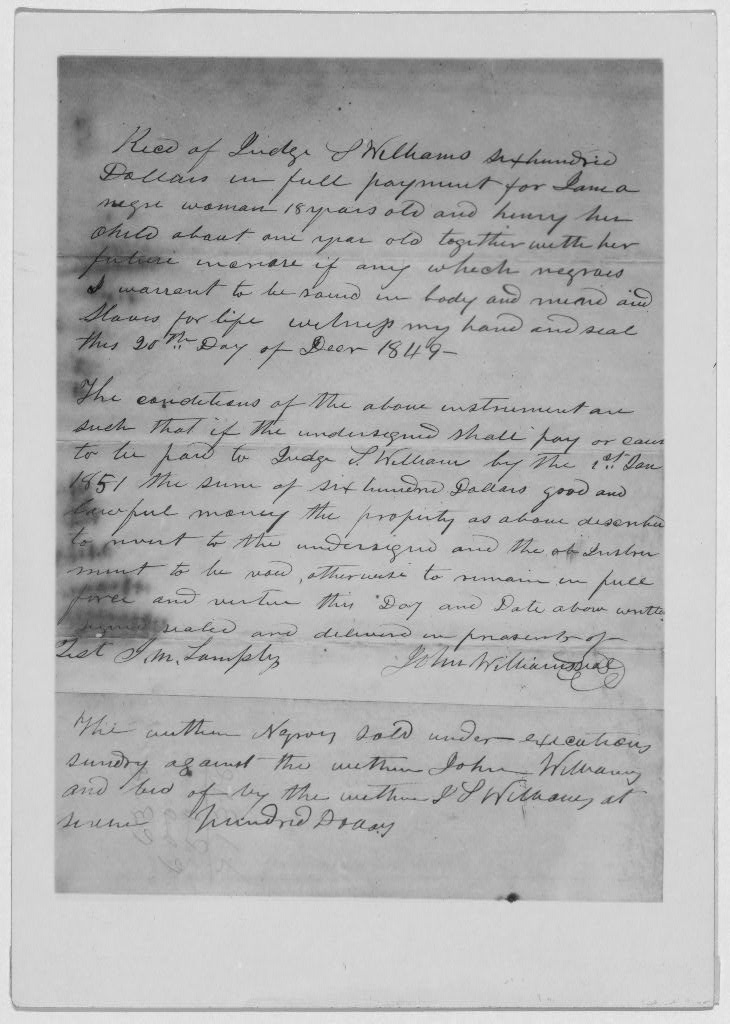 Recd of Judge S Williams six hundred
Dollars in full payment for Jane a
negro woman 18 years old and henry her
Child about one year old together with her
future increase if any which negroes
I warrant to be sound in body and mind and
Slaves for life witness my hand and seal
this 20th Day of Decr 1849—
The conditions of the above instrument are
such that if the undersigned shall pay or caus
to be paid to Judge S. William by the 1st Jan
1851 the sum of six hundred Dollars good and
lawful money the property as above describe
to revert to the undersigned and the ob Instru
ment to be void, otherwise to remain in full
force and virtue this Day and Date above writte
signed sealed and delivered in presents of
Test J. M. Lampley John Williams seal
The within Negroes sold under executions
sundry against the within John Williams
and bid of by the within J S Williams at
hundred Dollars